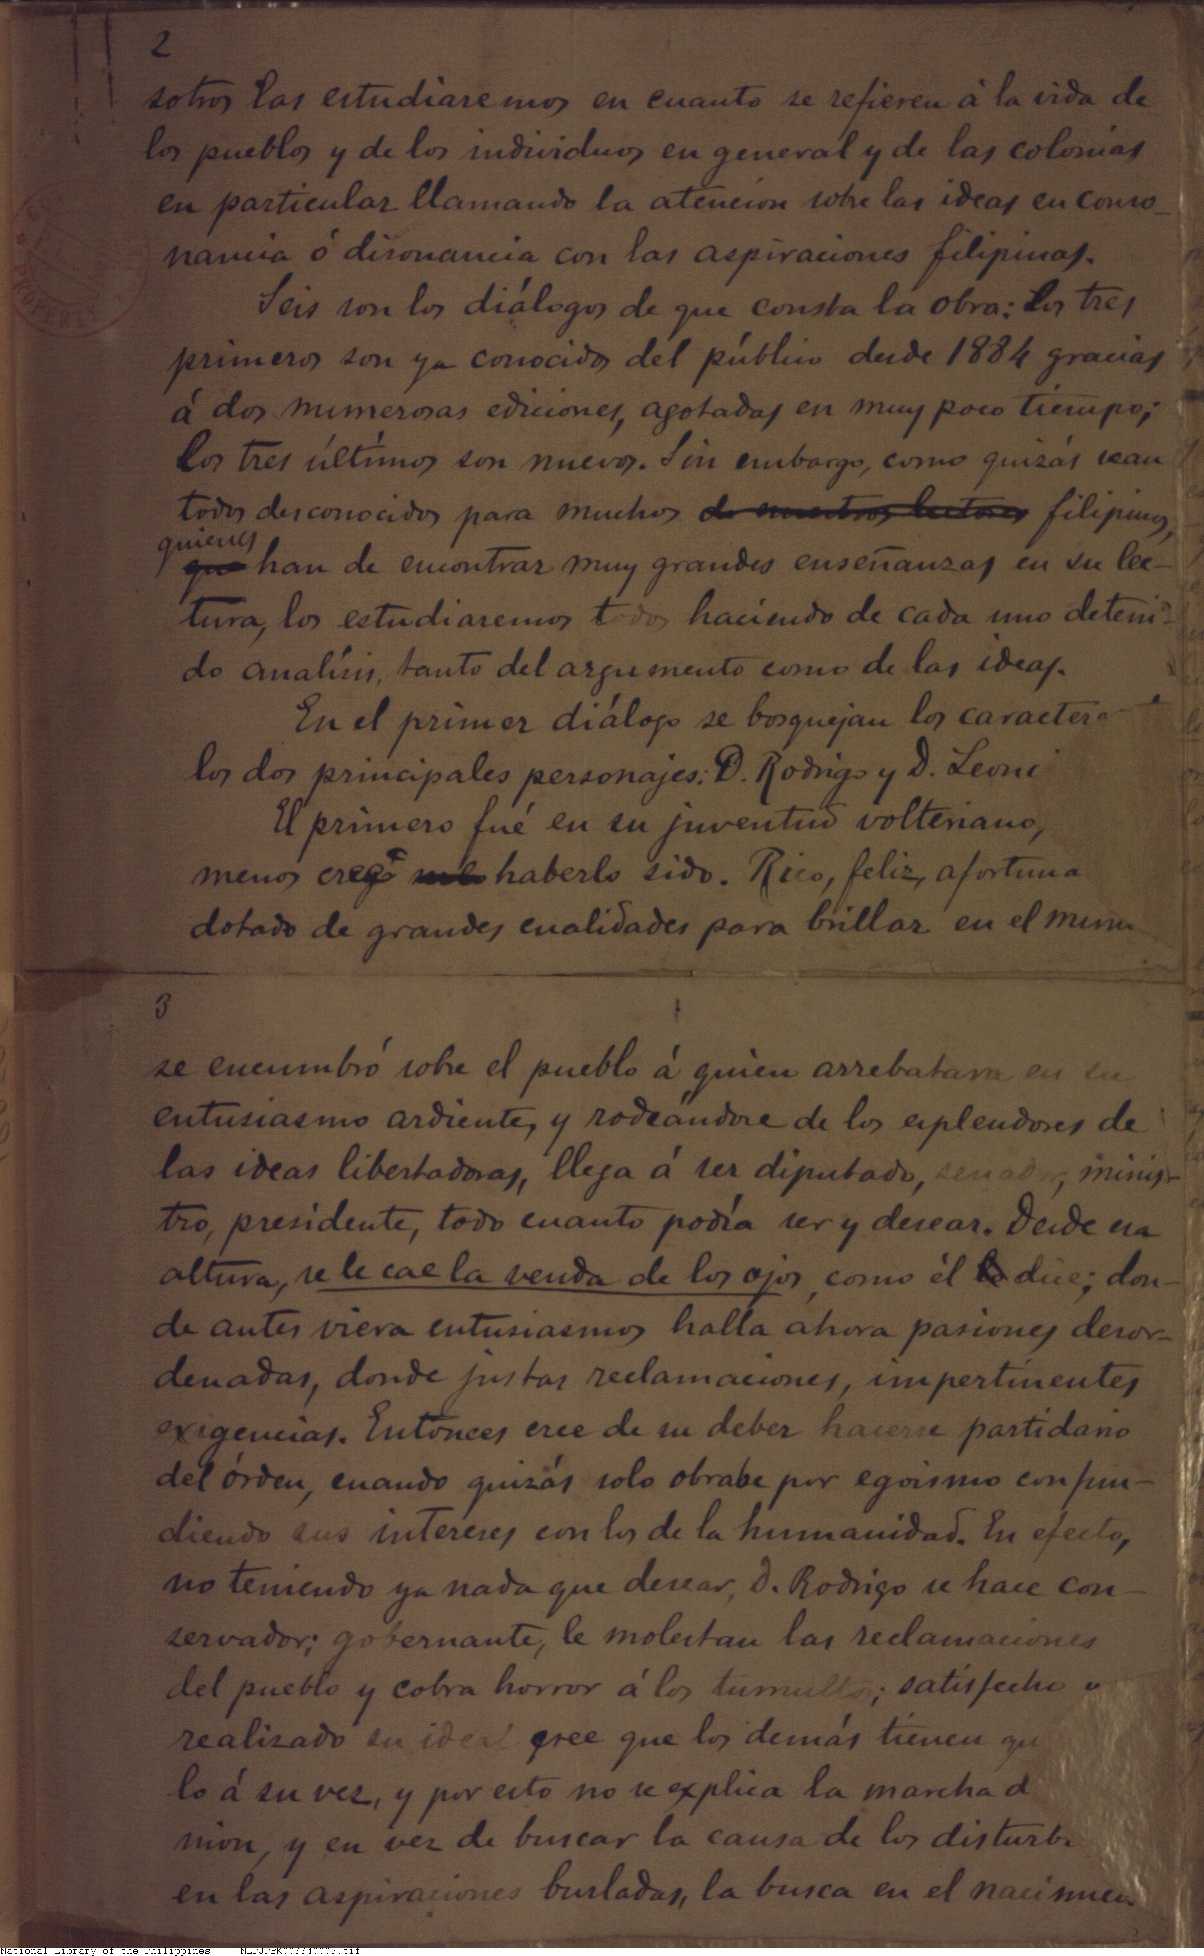 2
sotros las estudiaremos en cuanto se refieren á la vida de
los pueblos y de los individuos en general y de las colonias
en particular llamando la atencion sobre las ideas en conso-
nancia ó disonancia con las aspiraciones filipinas.
Seis son los diálogos de que consta la obra: los tres
primeros son ya conocidos del público desde 1884 gracias
á dos numerosas ediciones, agotadas en muy poco tiempo;
los tres últimos son nuevos. Sin embargo, como quizás sean
todos desconocidos para muchos de nuestros lectores filipinos,
quienes
que han de encontrar muy grandes enseñanzas en su lec-
tura, los estudiaremos todos haciendo de cada uno deteni-
do analisis, tanto del argumento como de las ideas.
En el primer diálogo se bosquejan los caractere
los dos principales personajes: D. Rodrigo y D. Leoni
El primero fué en su juventud volteriano,
menos cree haberlo sido. Rico, feliz, afortuna
dotado de grandes cualidades para brillar en el mun
3
se encumbró sobre el pueblo á quien arrebatara en su
entusiasmo ardiente, y rodeándose de los esplendores de
las ideas libertadoras, llega á ser diputado, senador, minis-
tro, presidente, todo cuanto podía ser y desear. Desde esa
altura, se le cae la venda de los ojos, como él dice; don-
de antes viera entusiasmos halla ahora pasiones desor-
denadas, donde justas reclamaciones, impertinentes
exigencias. Entonces cree de su deber hacerse partidario
del órden, cuando quizás solo obrabe por egoismo confun-
diendo sus intereses con los de la humanidad. En efecto,
no teniendo ya nada que desear, D. Rodrigo se hace con-
servador; gobernante, le molestan las reclamaciones
del pueblo y cobra horror á los tumultos; satisfecho
realizado su ideal cree que los demás tienen qu
lo á su vez, y por esto no se explica la marcha d
nion, y en vez de buscar la causa de los disturb
en las aspiraciones burladas, la busca en el nacimien
National Library of the Philippines